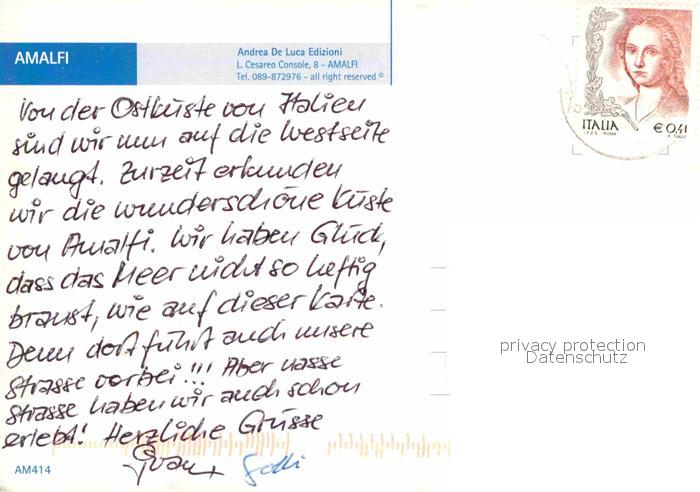 AMALFI
Andrea De Luca Edizioni
L. Cesareo Console, 8 - AMALFI
Tel. 089-872976 - all right reserved ©
Von der Ostküste von Italien
sind wir nun auf die Westseite
gelangt. Zurzeit erkunden
wir die wunderschöne Küste
von Amalfi. Wir haben Glück,
dass das Meer nicht so heftig
braust, wie auf dieser Karte.
Denn dort führt auch unsere
Strasse vorbei!!! Aber nasse
Strasse haben wir auch schon
erlebt! Herzliche Grüsse
AM414
ITALIA
€ 0,41
I.P.Z.S. ROMA
privacy protection
Datenschutz